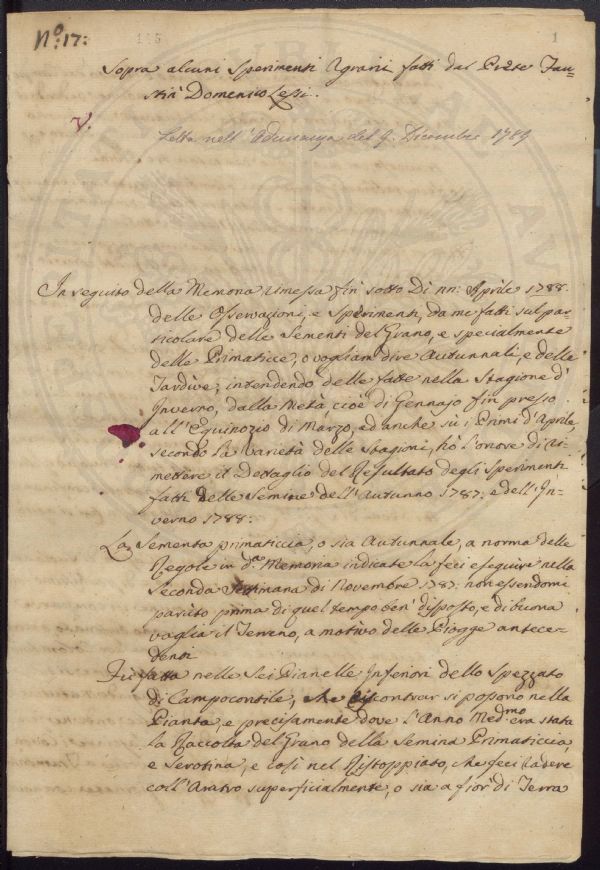 N.º 17:
115
1
Sopra alcuni Sperimenti Agrarii fatti dal Prete Fau=
stin Domenico Lessi.
V.
Letta nell'Adunanza del 9. Dicembre 1789
In seguito della Memoria rimessa fin sotto Dì nn: Aprile 1788.
delle Osservazioni, e Sperimenti, da me fatti sul par-
ticolare delle Sementi del Grano, e specialmente
delle Primaticce, o vogliam dire Autunnali, e delle
Tardive; intendendo delle fatte nella Stagione d'
Inverno, dalla Metà, cioè di Gennajo fin presso
all'Equinozio di Marzo, ed anche sù i Primi d'Aprile,
secondo la varietà delle Stagioni, hò l'onore di ri-
mettere il Dettaglio del Resultato degli Sperimenti
fatti delle Semine dell'Autunno 1787: e dell'In-
verno 1788:
La Sementa primaticcia, o sia Autunnale, a norma delle
Regole in d.ª Memoria indicate la feci eseguire nella
Seconda Settimana di Novembre 1787: non essendomi
parùto prima di quel tempo ben' disposto, e di buona
voglia il Terreno, a motivo delle Piogge antece-
denti
Fù fatta nelle Sei Pianelle Inferiori dello Spezzato
di Campocontile, che riscontrar si possono nella
Pianta, e precisamente dove l'Anno Med.mo era stata
la Raccolta del Grano della Semina Primaticcia,
e Serotina, e così nel Ristoppiato, che feci
coll'Aratro superficialmente, o sia a fior' di Terra